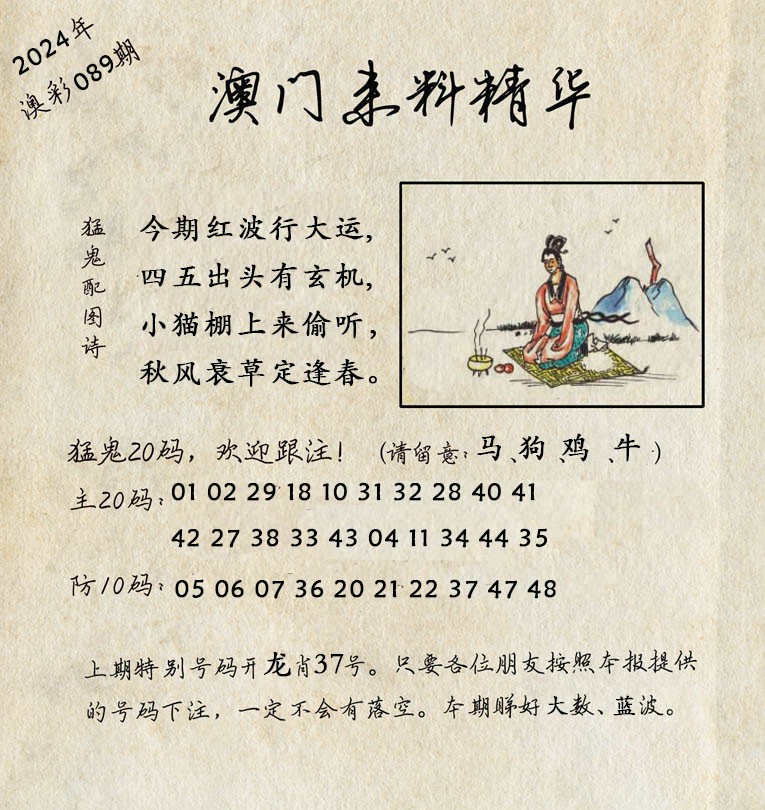 2024年
澳彩089期
澳门来料精华
猛鬼配图诗
今期红波行大运,
四五出头有玄机,
小猫棚上来偷听,
秋风衰草定逢春。
猛鬼20码，欢迎跟注！（请留意:马、狗、鸡、牛）
主20码: 01 02 29 18 10 31 32 28 40 41
42 27 38 33 43 04 11 34 44 35
防10码: 05 06 07 36 20 21 22 37 47 48
上期特别号码开龙肖37号。只要各位朋友按照本报提供
的号码下注，一定不会有落空。本期睇好大数、蓝波。